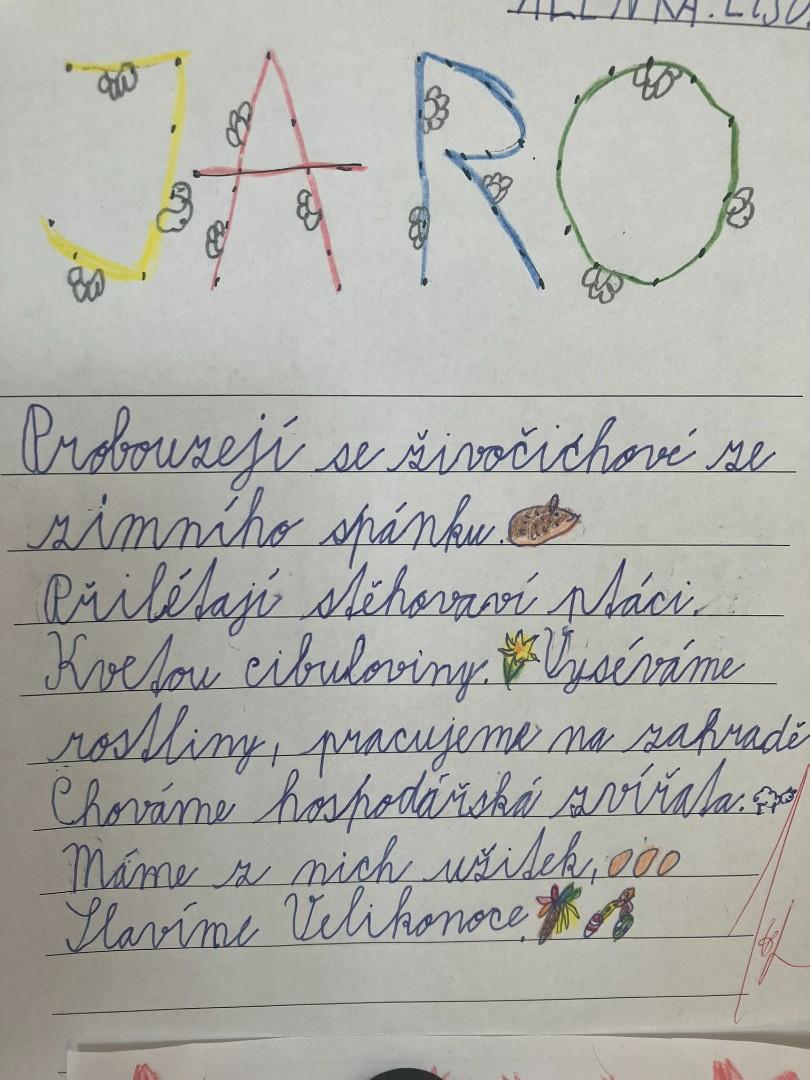 JARO
Probouzejí se živočichové ze
zimního spánku.
Přilétají stěhovaví ptáci.
Kvetou cibuloviny. Vyséváme
rostliny, pracujeme na zahradě
Chováme hospodářská zvířata.
Máme z nich užitek.
Slavíme Velikonoce.